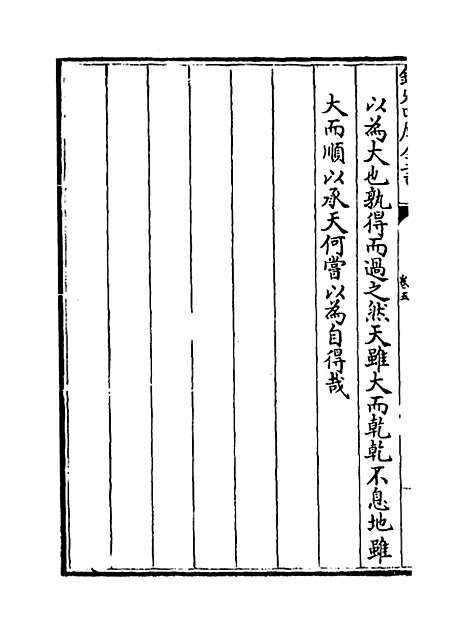 欽定四庫全書
卷五
以為大也孰得而過之然天雖大而乾乾不息地雖
大而順以承天何嘗以為自得哉